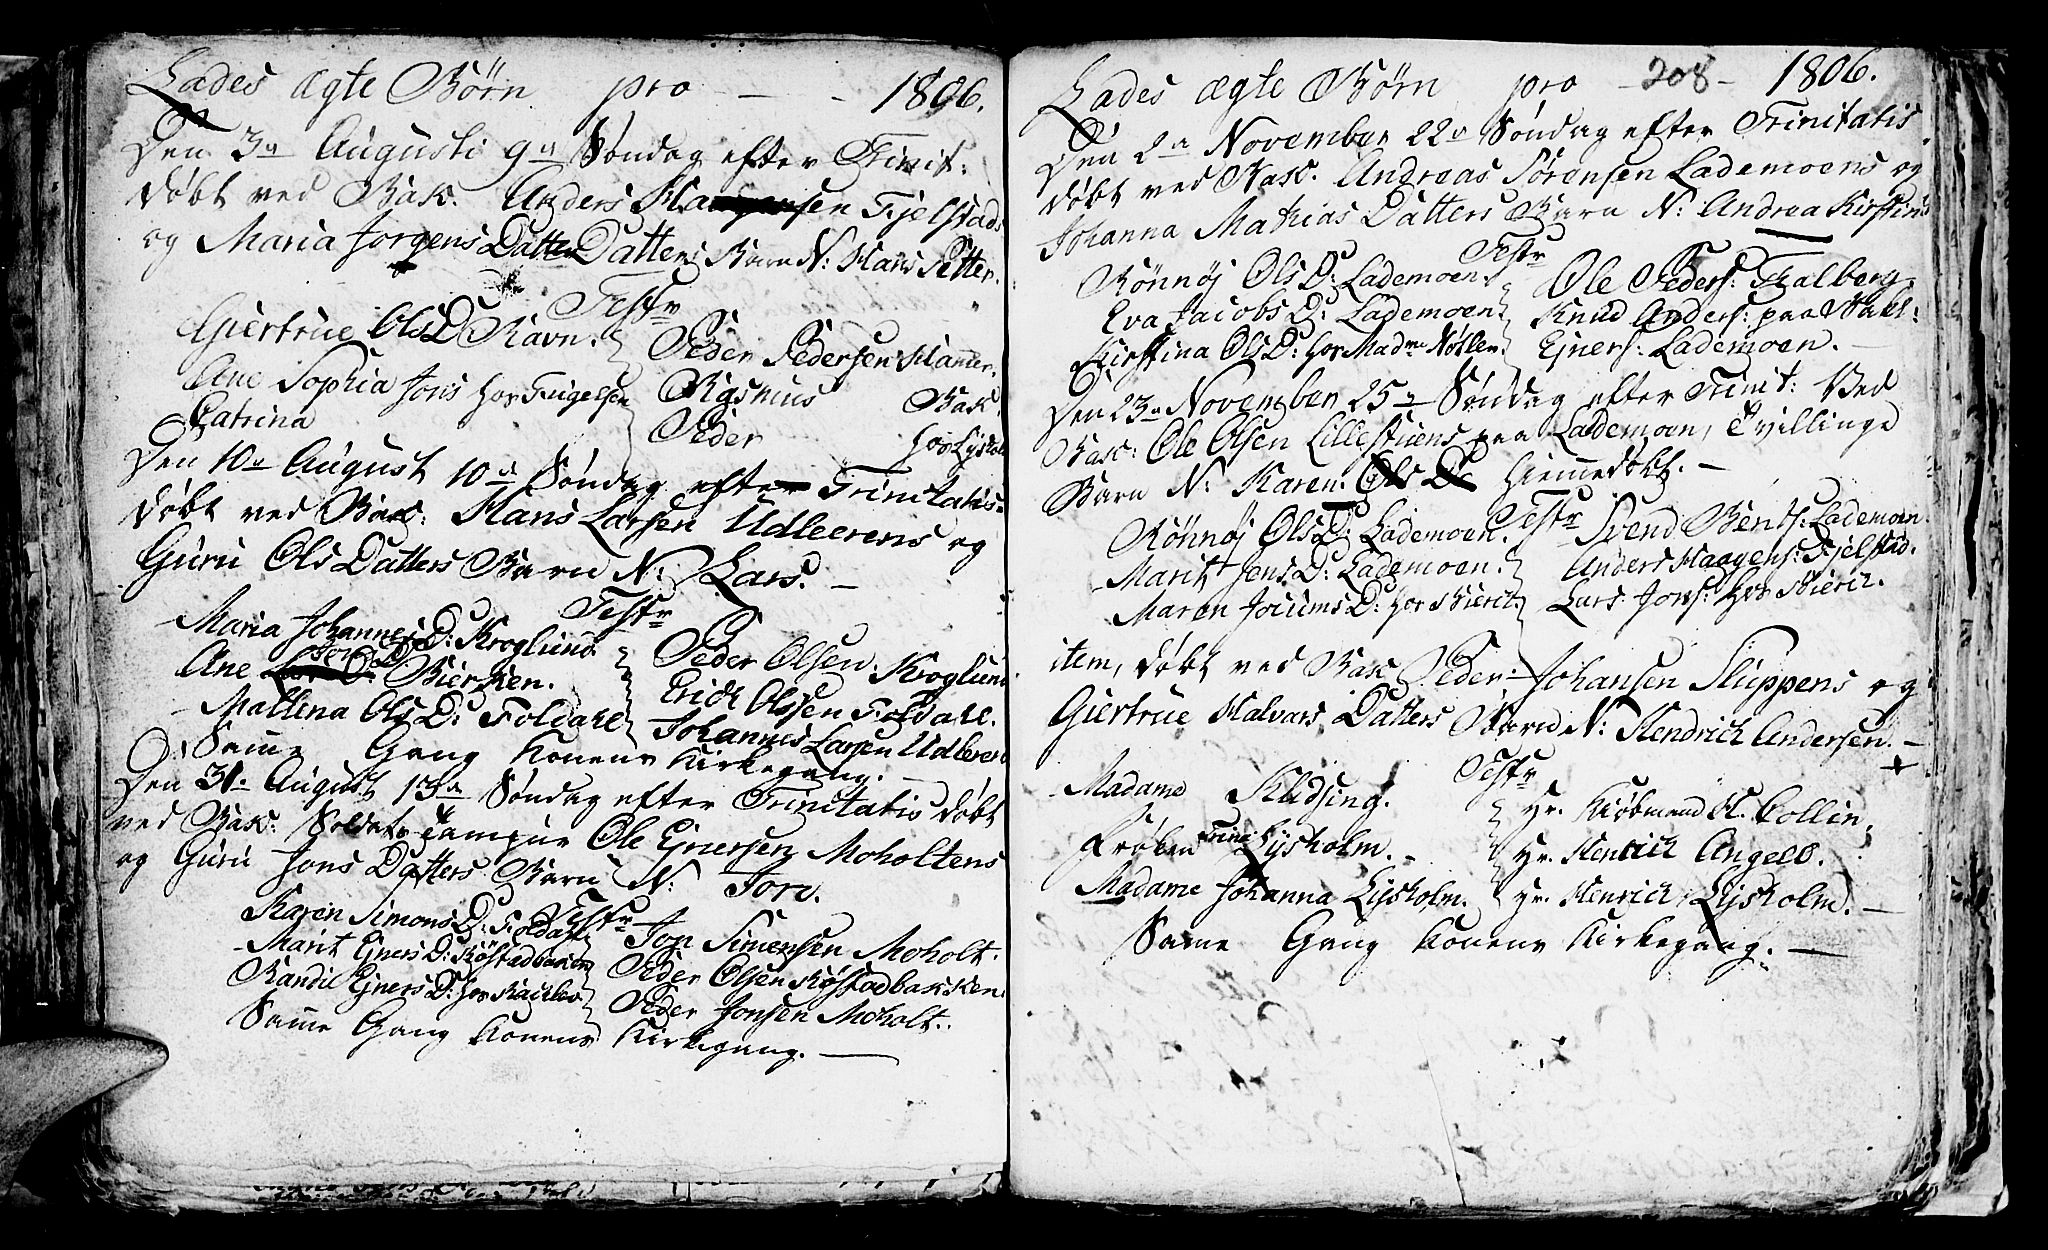 Lades ægte Børn pro - - 1806.
Den 3die Augusti 9de Søndag efter Trinit:
døbt ved Bak. Anders Haagensen Fjelstads
og Maria Jørgens Datter Datters Barn N: Hans Petter.
Testr
Giertrue OlsD Ravn. Peder Pedersen Hammer.
Ane Sophia Jons hos Trigelsen Rasmus Bak.
Catrina Peder hos Lysholm
Den 10de August 10de Søndag efter Trinitatis
døbt ved Bak: Hans Larsen Udleerens og
Guru Ols Datters Barn N: Lars. -
Testr
Maria Johannes D: Kroglund. Peder Olsen Kroglund
Ane Jons D: Biercken. Erich Olsen Foldahl.
Mallena Ols D: Foldahl Johannes Larsen Udleeren
Samme Gang Konens Kirkegang. -
Den 31te August 13de Søndag efter Trinitatis døbt
ved Bak: Soldat Tampur Ole Ejnersen Moholtens
og Guru Jons Datters Barn N: Jon.
Testr
Karen Simons D: Foldahl Jon Simensen Moholt.
Marit Ejners D: Røstadbacken Peder Olsen Røstadbakken.
Randi Ejners D: hos Kachlev Peder Jonsen Moholt.
Samme Gang Konens Kirkegang. -
Lades ægte Børn pro - 208 - 1806.
Den 2den November 22de Søndag efter Trinitatis
døbt ved Bak. Andreas Sørensen Lademoens og
Johanna Mathias Datters Barn N: Andrea Kirstina
Testr
Rønnøj Ols D: Lademoen. Ole Peders: Dalberg.
Eva Jacobs D: Lademoen Knud Anders: paa Bakl:
Kirstina Ols D: hos Madme Nøsler. Ejners: Lademoen. -
Den 23de November 25de Søndag efter Trinit: Ved
Bak: Ole Olsen Lillestuens paa Lademoen, Tvillinge
Barn N: Karen. Ols D hiemmedøbt. -
Testr
Rønnøj Ols D: Lademoen. Svend Bents: Lademoen.
Marit Jens D: Lademoen. Anders Haagens: Fjelstad.
Maren Jocums D: hos Bierit. Lars Jons: hos Bierit.
item, døbt ved Bak Peder Johansen Sluppens og
Giertrue Halvors Datters Barn N: Hendrich Andersen. -
Testr
Madame Klüdsing. Hr. Kiøbmand H. Collin.
Frøken Trine Lysholm. - Hr. Henrich Angell.
Madame Johanna Lysholm. Hr. Henrich Lysholm. -
Samme Gang Konens Kirkegang. -